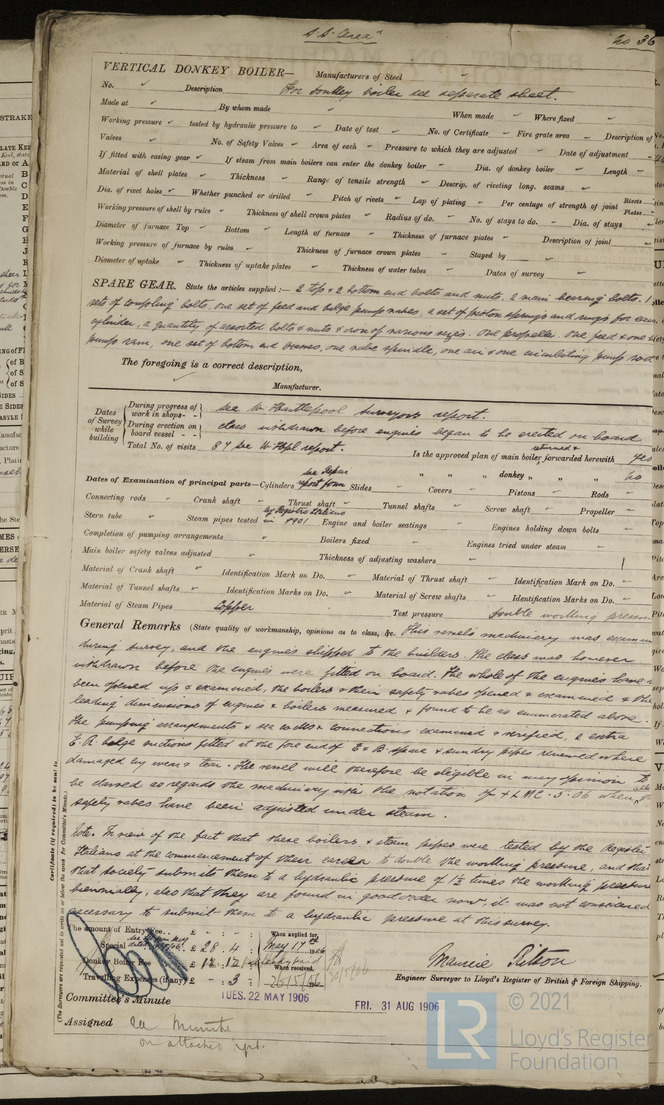 S.S. "Area"
No 36
VERTICAL DONKEY BOILER— Manufacturers of Steel
No. Description For donkey boiler see separate sheet.
Made at By whom made When made Where fixed
Working pressure tested by hydraulic pressure to Date of test No. of Certificate Fire grate area Description of
Valves No. of Safety Valves Area of each Pressure to which they are adjusted Date of adjustment
If fitted with easing gear If steam from main boilers can enter the donkey boiler Dia. of donkey boiler Length
Material of shell plates Thickness Range of tensile strength Descrip. of riveting long. seams
Dia. of rivet holes Whether punched or drilled Pitch of rivets Lap of plating Per centage of strength of joint Rivets Plates
Working pressure of shell by rules Thickness of shell crown plates Radius of do. No. of stays to do. Dia. of stays
Diameter of furnace Top Bottom Length of furnace Thickness of furnace plates Description of joint
Working pressure of furnace by rules Thickness of furnace crown plates Stayed by
Diameter of uptake Thickness of uptake plates Thickness of water tubes Dates of survey
SPARE GEAR. State the articles supplied:— 2 top & 2 bottom end bolts and nuts, 2 main bearing bolts, 1
set of coupling bolts, one set of feed and bilge pump valves, a set of piston springs and rings for each
cylinder, a quantity of assorted bolts & nuts & iron of various sizes. One propeller. One feed & one
pump ram, one set of bottom end brasses, one valve spindle, one air & one circulating pump rod
The foregoing is a correct description,
Manufacturer.
Dates of Survey while building
During progress of work in shops - - see W. Hartlepool Surveyors report.
During erection on board vessel - - - class withdrawn before engines began to be erected on board
Total No. of visits 87 see W. Hpl report. Is the approved plan of main boiler forwarded herewith yes
returned &
" " " donkey " " " no
Dates of Examination of principal parts—Cylinders Slides Covers Pistons Rods
Connecting rods Crank shaft Thrust shaft Tunnel shafts Screw shaft Propeller
Stern tube Steam pipes tested by Registro Italiano in 1901 Engine and boiler seatings Engines holding down bolts
Completion of pumping arrangements Boilers fixed Engines tried under steam
Main boiler safety valves adjusted Thickness of adjusting washers
Material of Crank shaft Identification Mark on Do. Material of Thrust shaft Identification Mark on Do.
Material of Tunnel shafts Identification Marks on Do. Material of Screw shafts Identification Marks on Do.
Material of Steam Pipes Copper Test pressure double working pressure
General Remarks (State quality of workmanship, opinions as to class, &c. This vessel's machinery was examined
during survey, and the engines shipped to the builders. The class was however
withdrawn before the engines were fitted on board. The whole of the engines have
been opened up & examined, the boilers & their safety valves opened & examined & the
leading dimensions of engines & boilers measured & found to be as enumerated above.
The pumping arrangements & sea valves & connections examined & verified, 2 extra
E.R. bilge suctions fitted at the fore end of E & B space & sundry pipes renewed where
damaged by wear & tear. The vessel will therefore be eligible in my opinion to
be classed as regards the machinery with the notation of + LMC. 5. 06 when
safety valves have been adjusted under steam.
Note. In view of the fact that these boilers & steam pipes were tested by the Registro
Italiano at the commencement of their career to double the working pressure, and that
that society submits them to a hydraulic pressure of 1½ times the working pressure
biennially, also that they are found in good order now, it was not considered
necessary to submit them to a hydraulic pressure at this survey.
Certificate (if required) to be sent to
(The Surveyors are requested not to write on or below the space for Committee's Minute.)
The amount of Entry Fee.. £ : : When applied for,
Special £ 28 : 4 : May 17th 1906
Donkey Boiler Fee £ 12 : 12 : When received,
Travelling Expenses (if any) £ - : 3 :
Maurice Sitson
Engineer Surveyor to Lloyd's Register of British & Foreign Shipping.
Committee's Minute TUES. 22 MAY 1906 FRI. 31 AUG 1906
Assigned See Minute
on attached rpt.
© 2021
Lloyd's Register
Foundation
LR